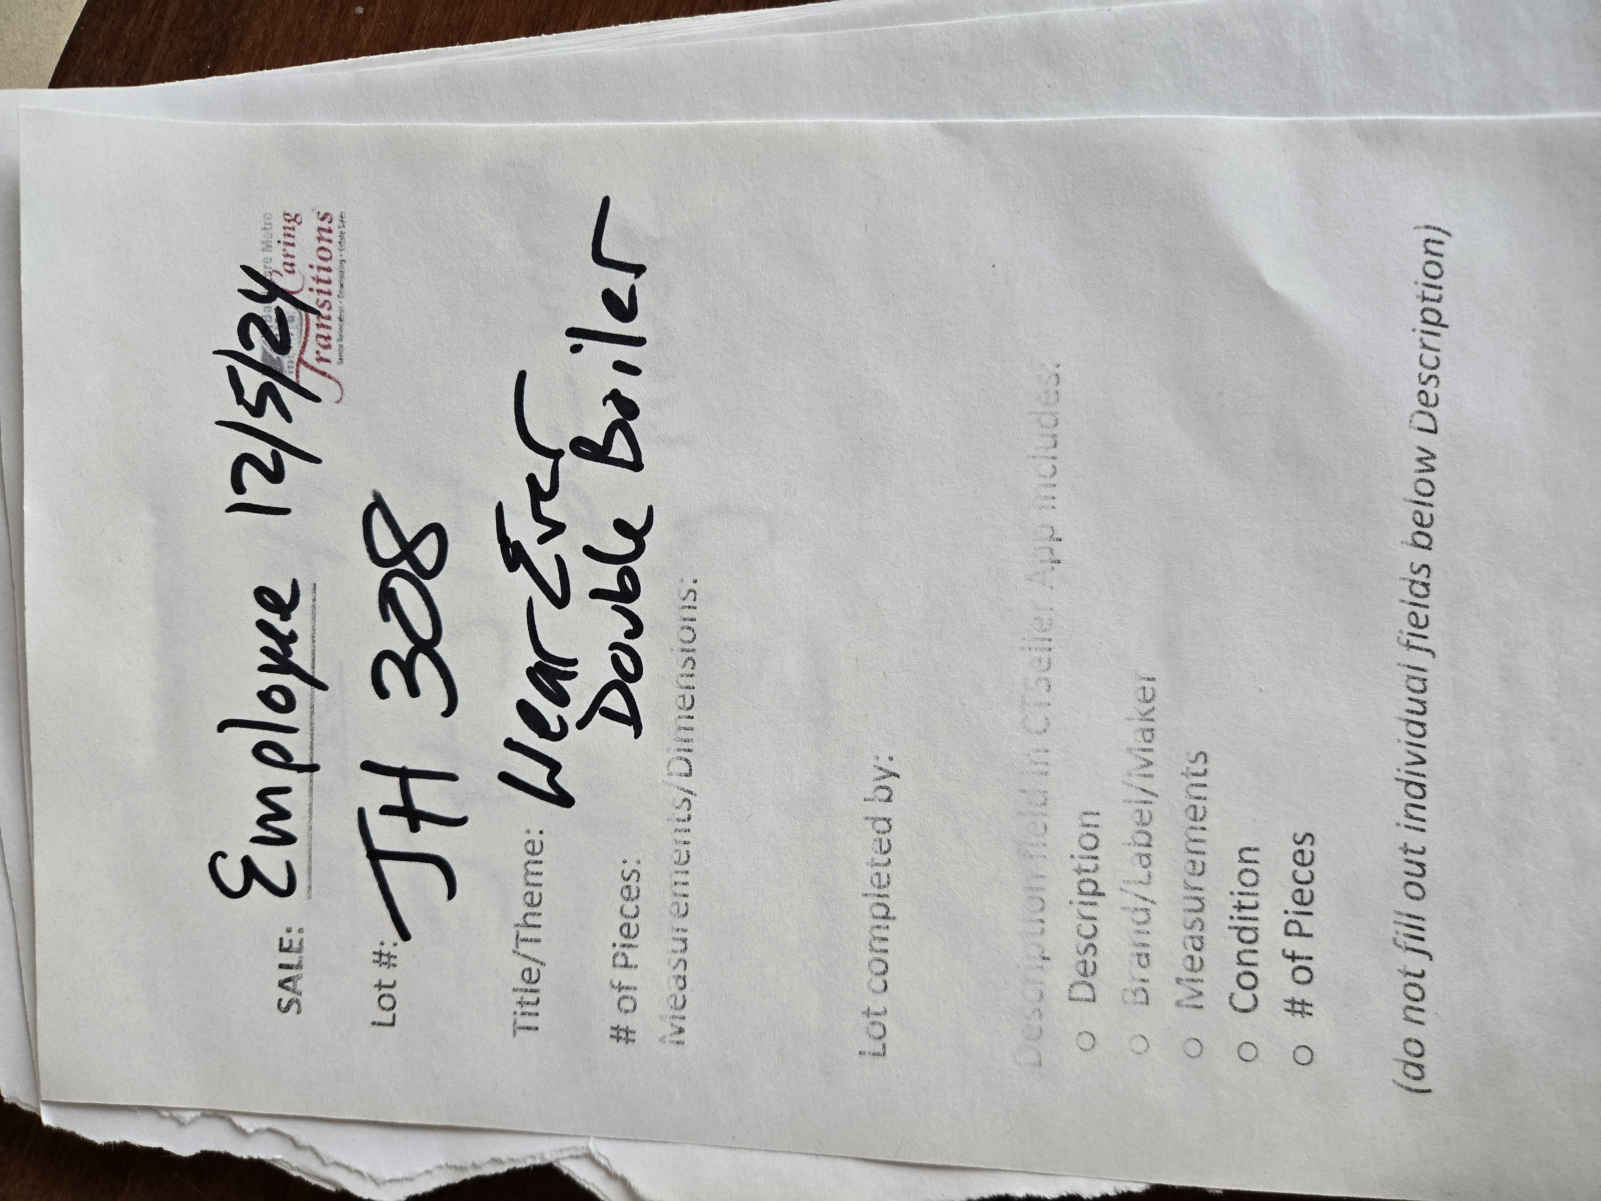 SALE: Employee 12/5/24
Caring
Transitions
Lot #: JH 308
Title/Theme: Wear Ever
Double Boiler
# of Pieces:
Measurements/Dimensions:
Lot completed by:
Description field in CTseller App includes:
○ Description
○ Brand/Label/Maker
○ Measurements
○ Condition
○ # of Pieces
(do not fill out individual fields below Description)